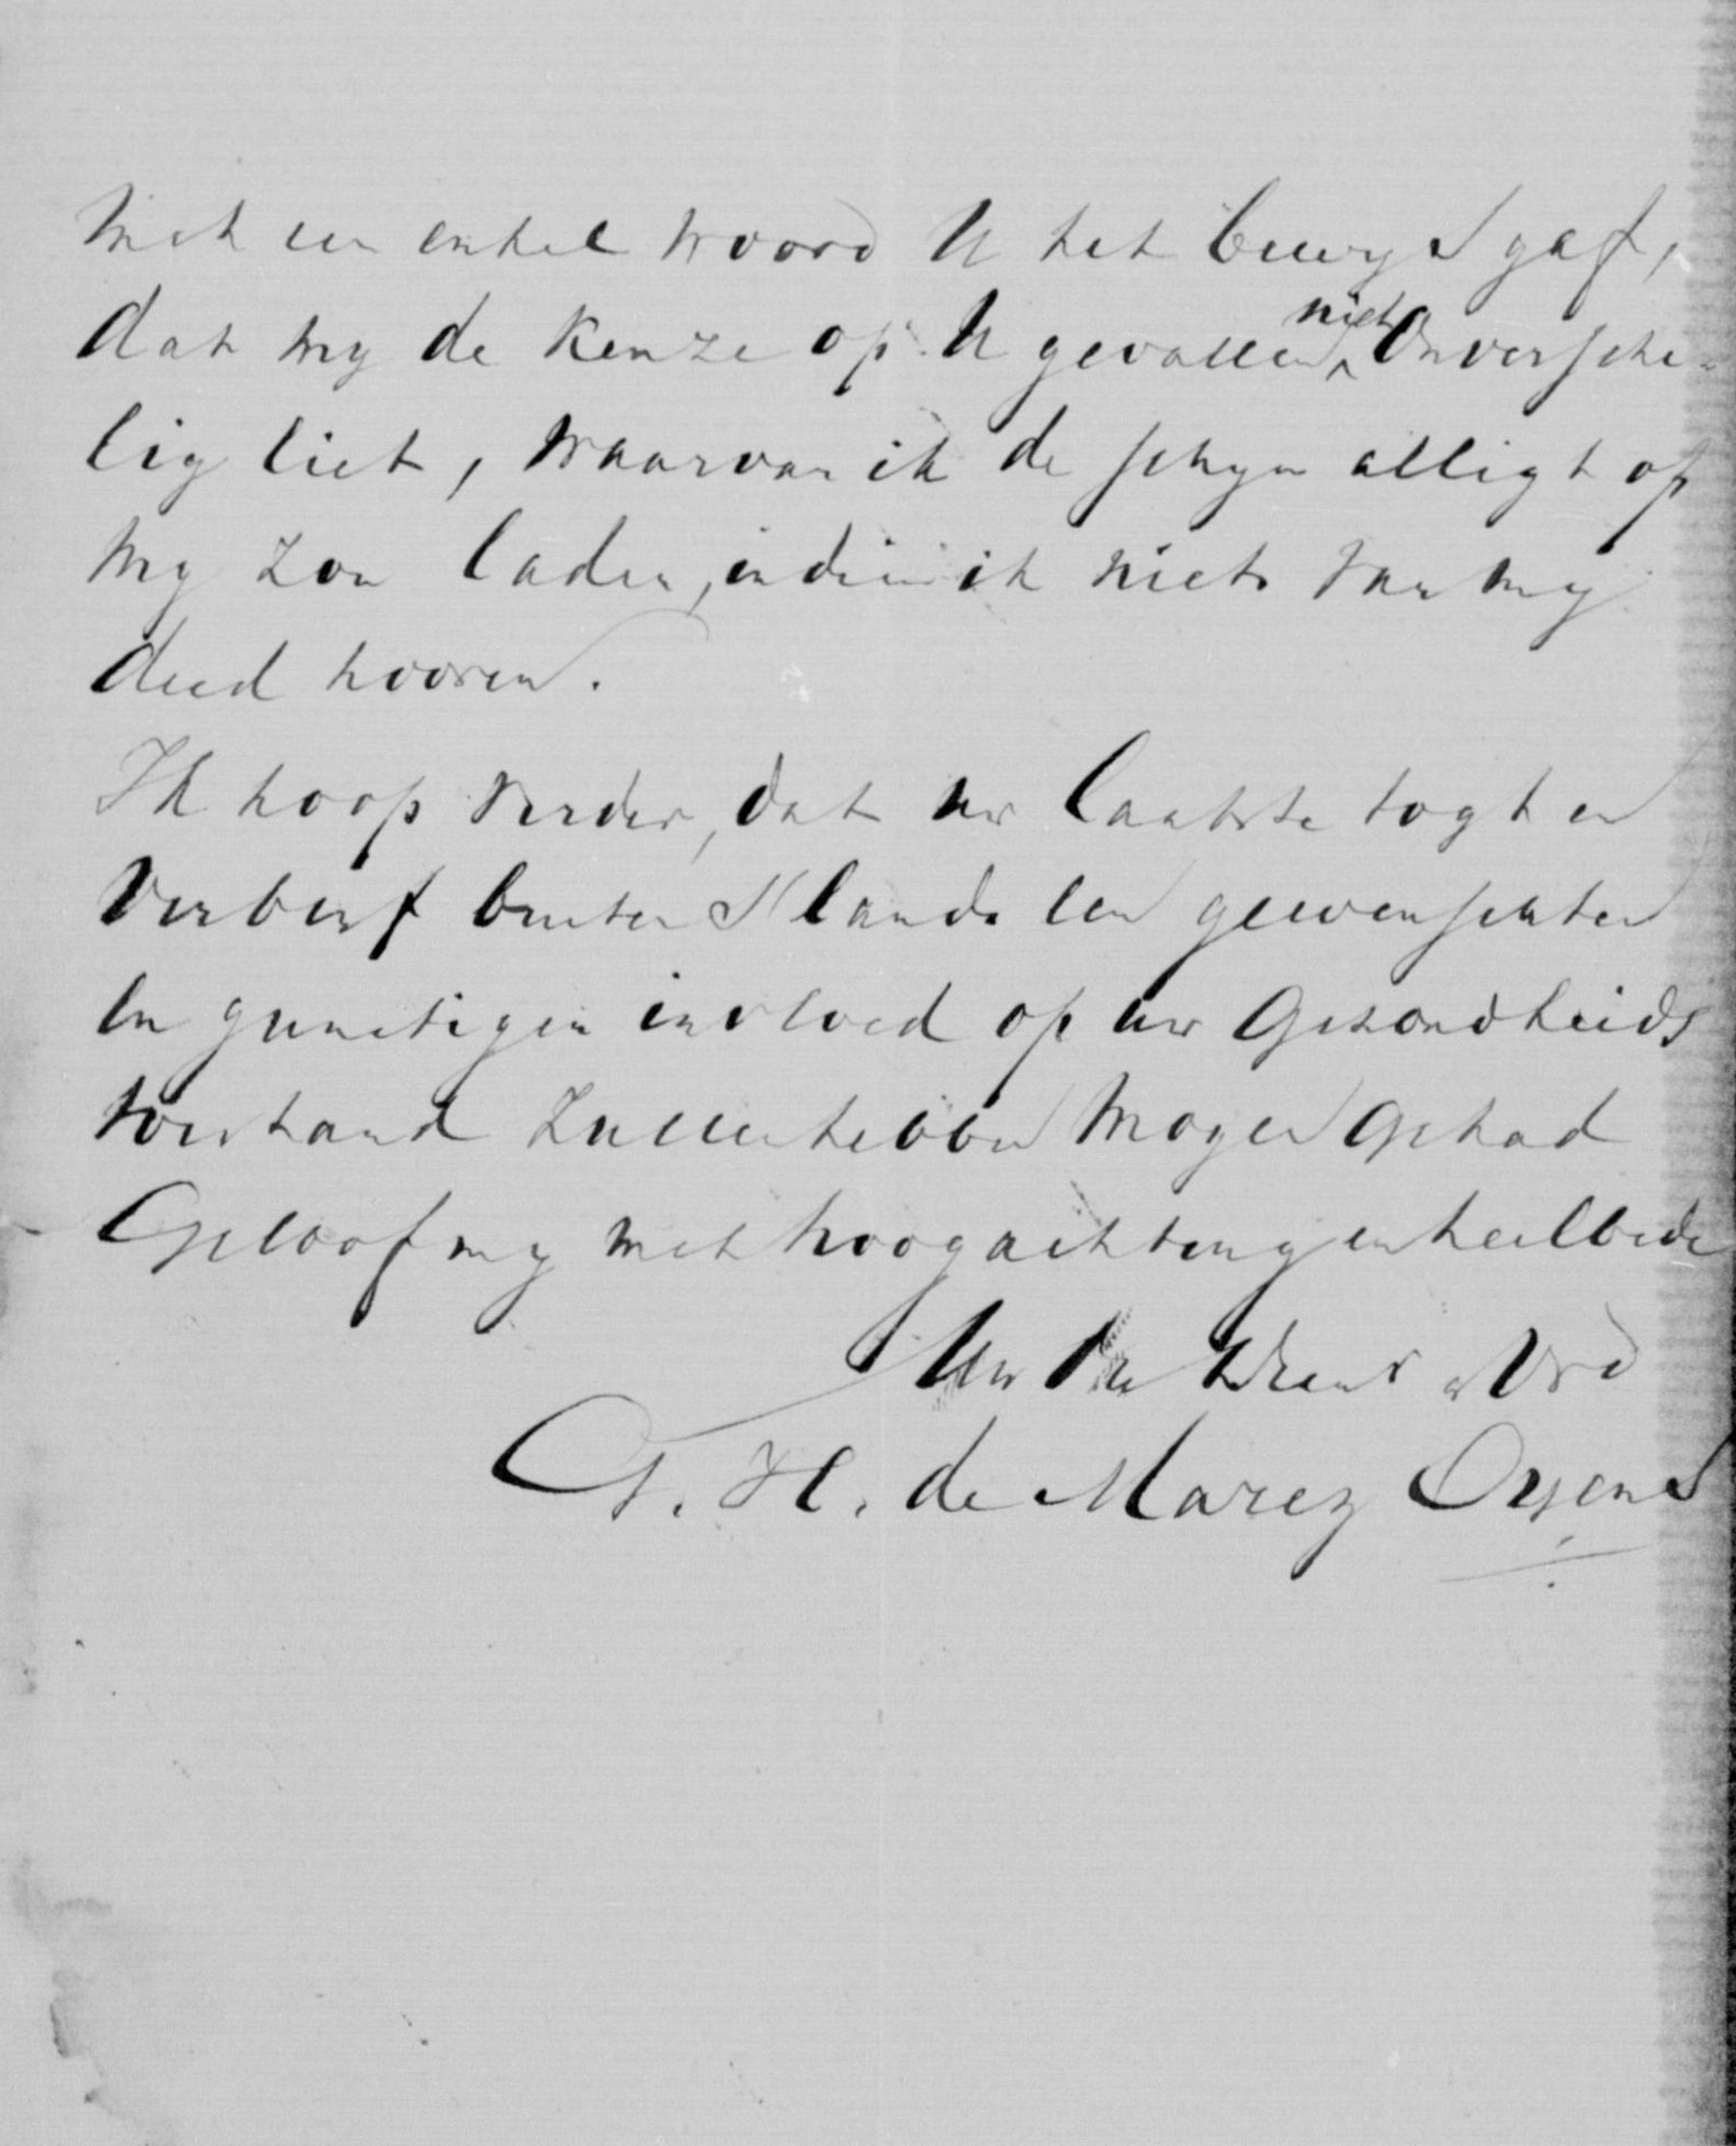 met een enkel woord U het bewys gaf,
dat my de keuze op U gevallen niet onversche-
lig liet, waarvan ik de schyn alligt op
my zou laden, indien ik niets van my
deed hooren.
Ik hoop verder, dat uw laatste togt en
verblyf buiten 's lands een gewenschten
en gunstigen invloed op uw gezondheids
toestand zullen hebben mogen gehad
Geloof my met hoogachting en heilbede
Uw Dw Dienr & Vrd
G. H. de Marez Oyens